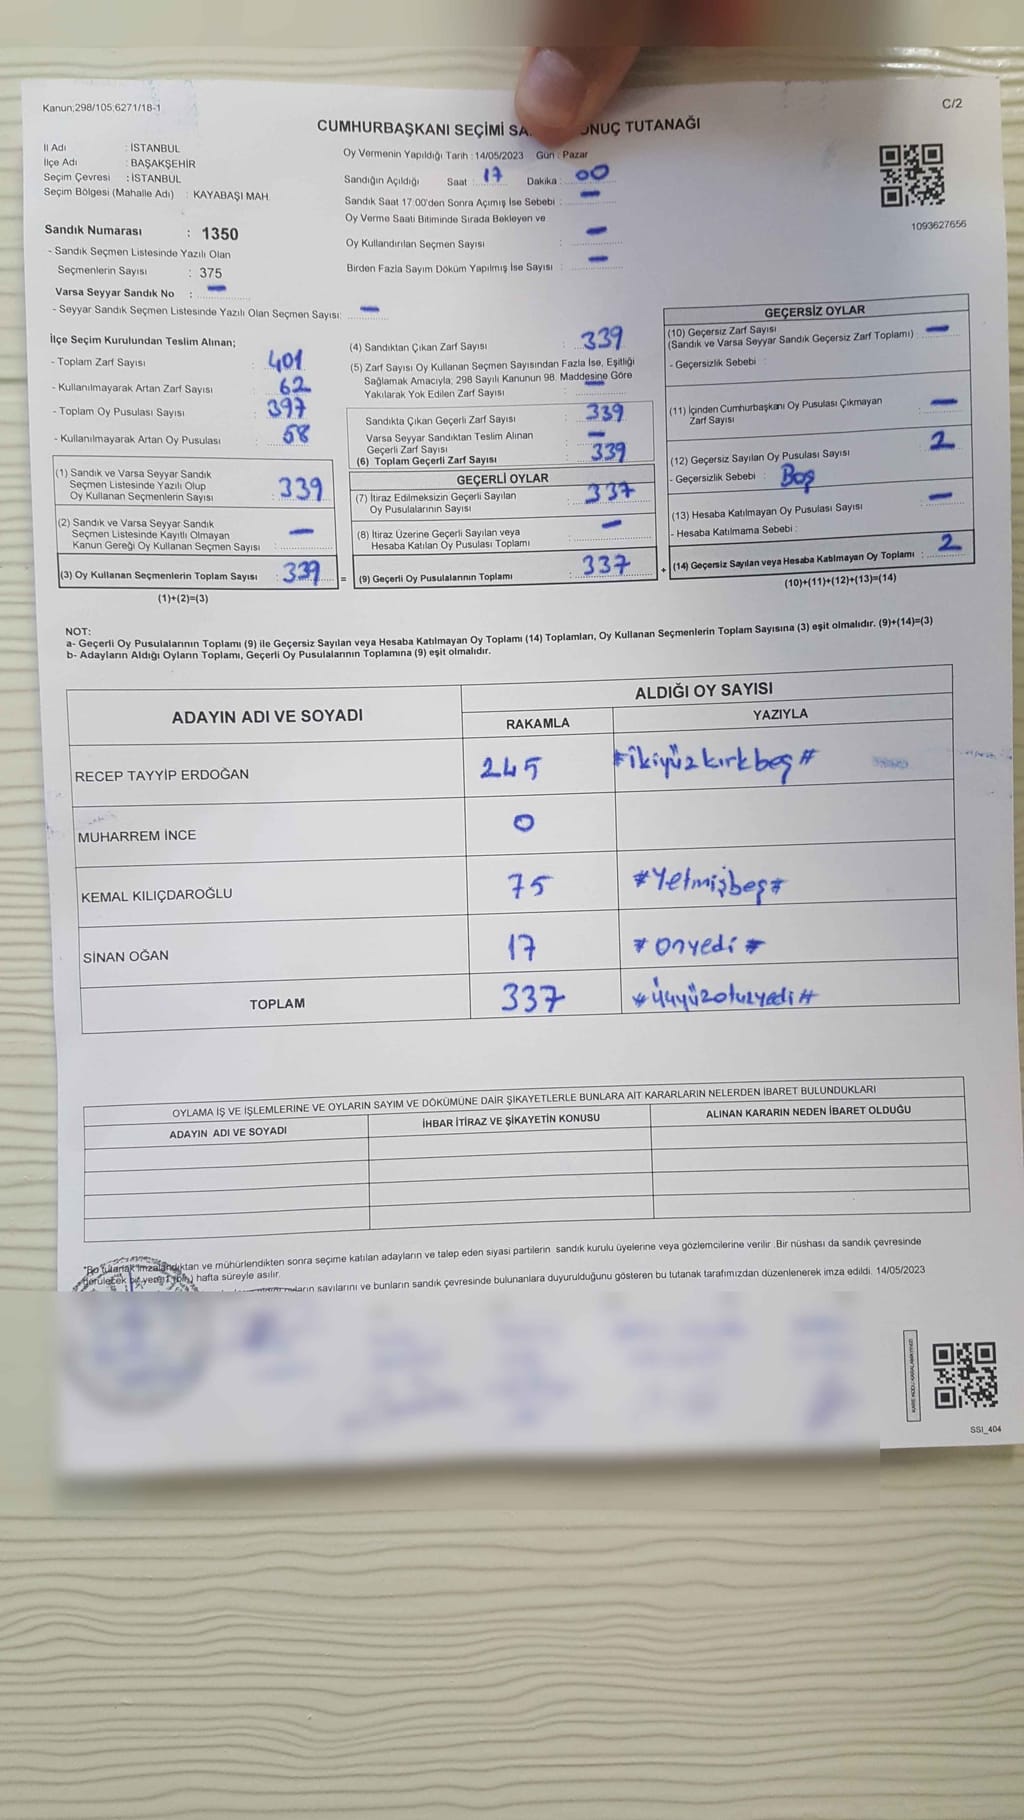 Kanun;298/105,6271/18-1
C/2
CUMHURBAŞKANI SEÇİMİ SA ONUÇ TUTANAĞI
İl Adı : İSTANBUL
İlçe Adı : BAŞAKŞEHİR
Seçim Çevresi : İSTANBUL
Seçim Bölgesi (Mahalle Adı) : KAYABAŞI MAH.
Oy Vermenin Yapıldığı Tarih : 14/05/2023 Gün : Pazar
Sandığın Açıldığı Saat : 17 Dakika : 00
Sandık Saat 17.00'den Sonra Açımış İse Sebebi : -
Oy Verme Saati Bitiminde Sırada Bekleyen ve
Oy Kullandırılan Seçmen Sayısı : -
Birden Fazla Sayım Döküm Yapılmış İse Sayısı : -
1093627656
Sandık Numarası : 1350
- Sandık Seçmen Listesinde Yazılı Olan
Seçmenlerin Sayısı : 375
Varsa Seyyar Sandık No : -
- Seyyar Sandık Seçmen Listesinde Yazılı Olan Seçmen Sayısı: -
İlçe Seçim Kurulundan Teslim Alınan;
- Toplam Zarf Sayısı : 401
- Kullanılmayarak Artan Zarf Sayısı : 62
- Toplam Oy Pusulası Sayısı : 397
- Kullanılmayarak Artan Oy Pusulası : 58
(1) Sandık ve Varsa Seyyar Sandık
Seçmen Listesinde Yazılı Olup
Oy Kullanan Seçmenlerin Sayısı : 339
(2) Sandık ve Varsa Seyyar Sandık
Seçmen Listesinde Kayıtlı Olmayan
Kanun Gereği Oy Kullanan Seçmen Sayısı : -
(3) Oy Kullanan Seçmenlerin Toplam Sayısı : 339
(1)+(2)=(3)
=
(4) Sandıktan Çıkan Zarf Sayısı : 339
(5) Zarf Sayısı Oy Kullanan Seçmen Sayısından Fazla İse, Eşitliği
Sağlamak Amacıyla, 298 Sayılı Kanunun 98. Maddesine Göre
Yakılarak Yok Edilen Zarf Sayısı : -
Sandıkta Çıkan Geçerli Zarf Sayısı : 339
Varsa Seyyar Sandıktan Teslim Alınan
Geçerli Zarf Sayısı : -
(6) Toplam Geçerli Zarf Sayısı : 339
GEÇERLİ OYLAR
(7) İtiraz Edilmeksizin Geçerli Sayılan
Oy Pusulalarının Sayısı : 337
(8) İtiraz Üzerine Geçerli Sayılan veya
Hesaba Katılan Oy Pusulası Toplamı : -
(9) Geçerli Oy Pusulalarının Toplamı : 337
+
GEÇERSİZ OYLAR
(10) Geçersiz Zarf Sayısı
(Sandık ve Varsa Seyyar Sandık Geçersiz Zarf Toplamı) : -
- Geçersizlik Sebebi :
(11) İçinden Cumhurbaşkanı Oy Pusulası Çıkmayan
Zarf Sayısı : -
(12) Geçersiz Sayılan Oy Pusulası Sayısı : 2
- Geçersizlik Sebebi : Boş
(13) Hesaba Katılmayan Oy Pusulası Sayısı : -
- Hesaba Katılmama Sebebi :
(14) Geçersiz Sayılan veya Hesaba Katılmayan Oy Toplamı : 2
(10)+(11)+(12)+(13)=(14)
NOT:
a- Geçerli Oy Pusulalarının Toplamı (9) ile Geçersiz Sayılan veya Hesaba Katılmayan Oy Toplamı (14) Toplamları, Oy Kullanan Seçmenlerin Toplam Sayısına (3) eşit olmalıdır. (9)+(14)=(3)
b- Adayların Aldığı Oyların Toplamı, Geçerli Oy Pusulalarının Toplamına (9) eşit olmalıdır.
ADAYIN ADI VE SOYADI ALDIĞI OY SAYISI
RAKAMLA YAZIYLA
RECEP TAYYİP ERDOĞAN 245 #ikiyüzkırkbeş#
MUHARREM İNCE 0
KEMAL KILIÇDAROĞLU 75 #Yetmişbeş#
SİNAN OĞAN 17 #Onyedi#
TOPLAM 337 #üçyüzotuzyedi#
OYLAMA İŞ VE İŞLEMLERİNE VE OYLARIN SAYIM VE DÖKÜMÜNE DAİR ŞİKAYETLERLE BUNLARA AİT KARARLARIN NELERDEN İBARET BULUNDUKLARI
ADAYIN ADI VE SOYADI İHBAR İTİRAZ VE ŞİKAYETİN KONUSU ALINAN KARARIN NEDEN İBARET OLDUĞU
*Bu tutanak imzalandıktan ve mühürlendikten sonra seçime katılan adayların ve talep eden siyasi partilerin sandık kurulu üyelerine veya gözlemcilerine verilir .Bir nüshası da sandık çevresinde
görülecek bir yere 1 (bir) hafta süreyle asılır.
sayılarını ve bunların sandık çevresinde bulunanlara duyurulduğunu gösteren bu tutanak tarafımızdan düzenlenerek imza edildi. 14/05/2023
SSI_404